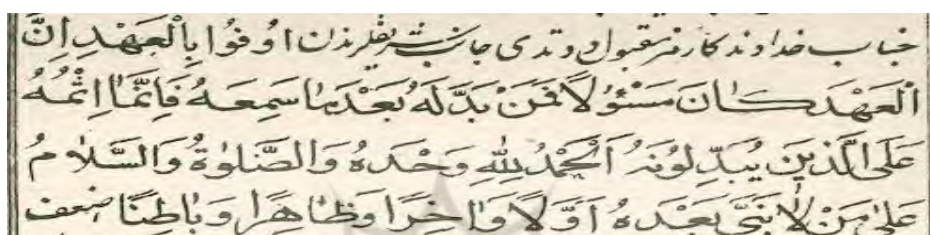 جناب خداوندكار مقبول اولدى جانب شريفلرندن اَوْفُوا بِالْعَهْدِ اِنَّ
الْعَهْدَ كَانَ مَسْئُولًا فَمَنْ بَدَّلَهُ بَعْدَ مَا سَمِعَهُ فَاِنَّمَا اِثْمُهُ
عَلَى الَّذِينَ يُبَدِّلُونَهُ اَلْحَمْدُ لِلّٰهِ وَحْدَهُ وَالصَّلٰوةُ وَالسَّلَامُ
عَلٰى مَنْ لَا نَبِىَّ بَعْدَهُ اَوَّلًا وَاٰخِرًا وَظَاهِرًا وَبَاطِنًا ضعف